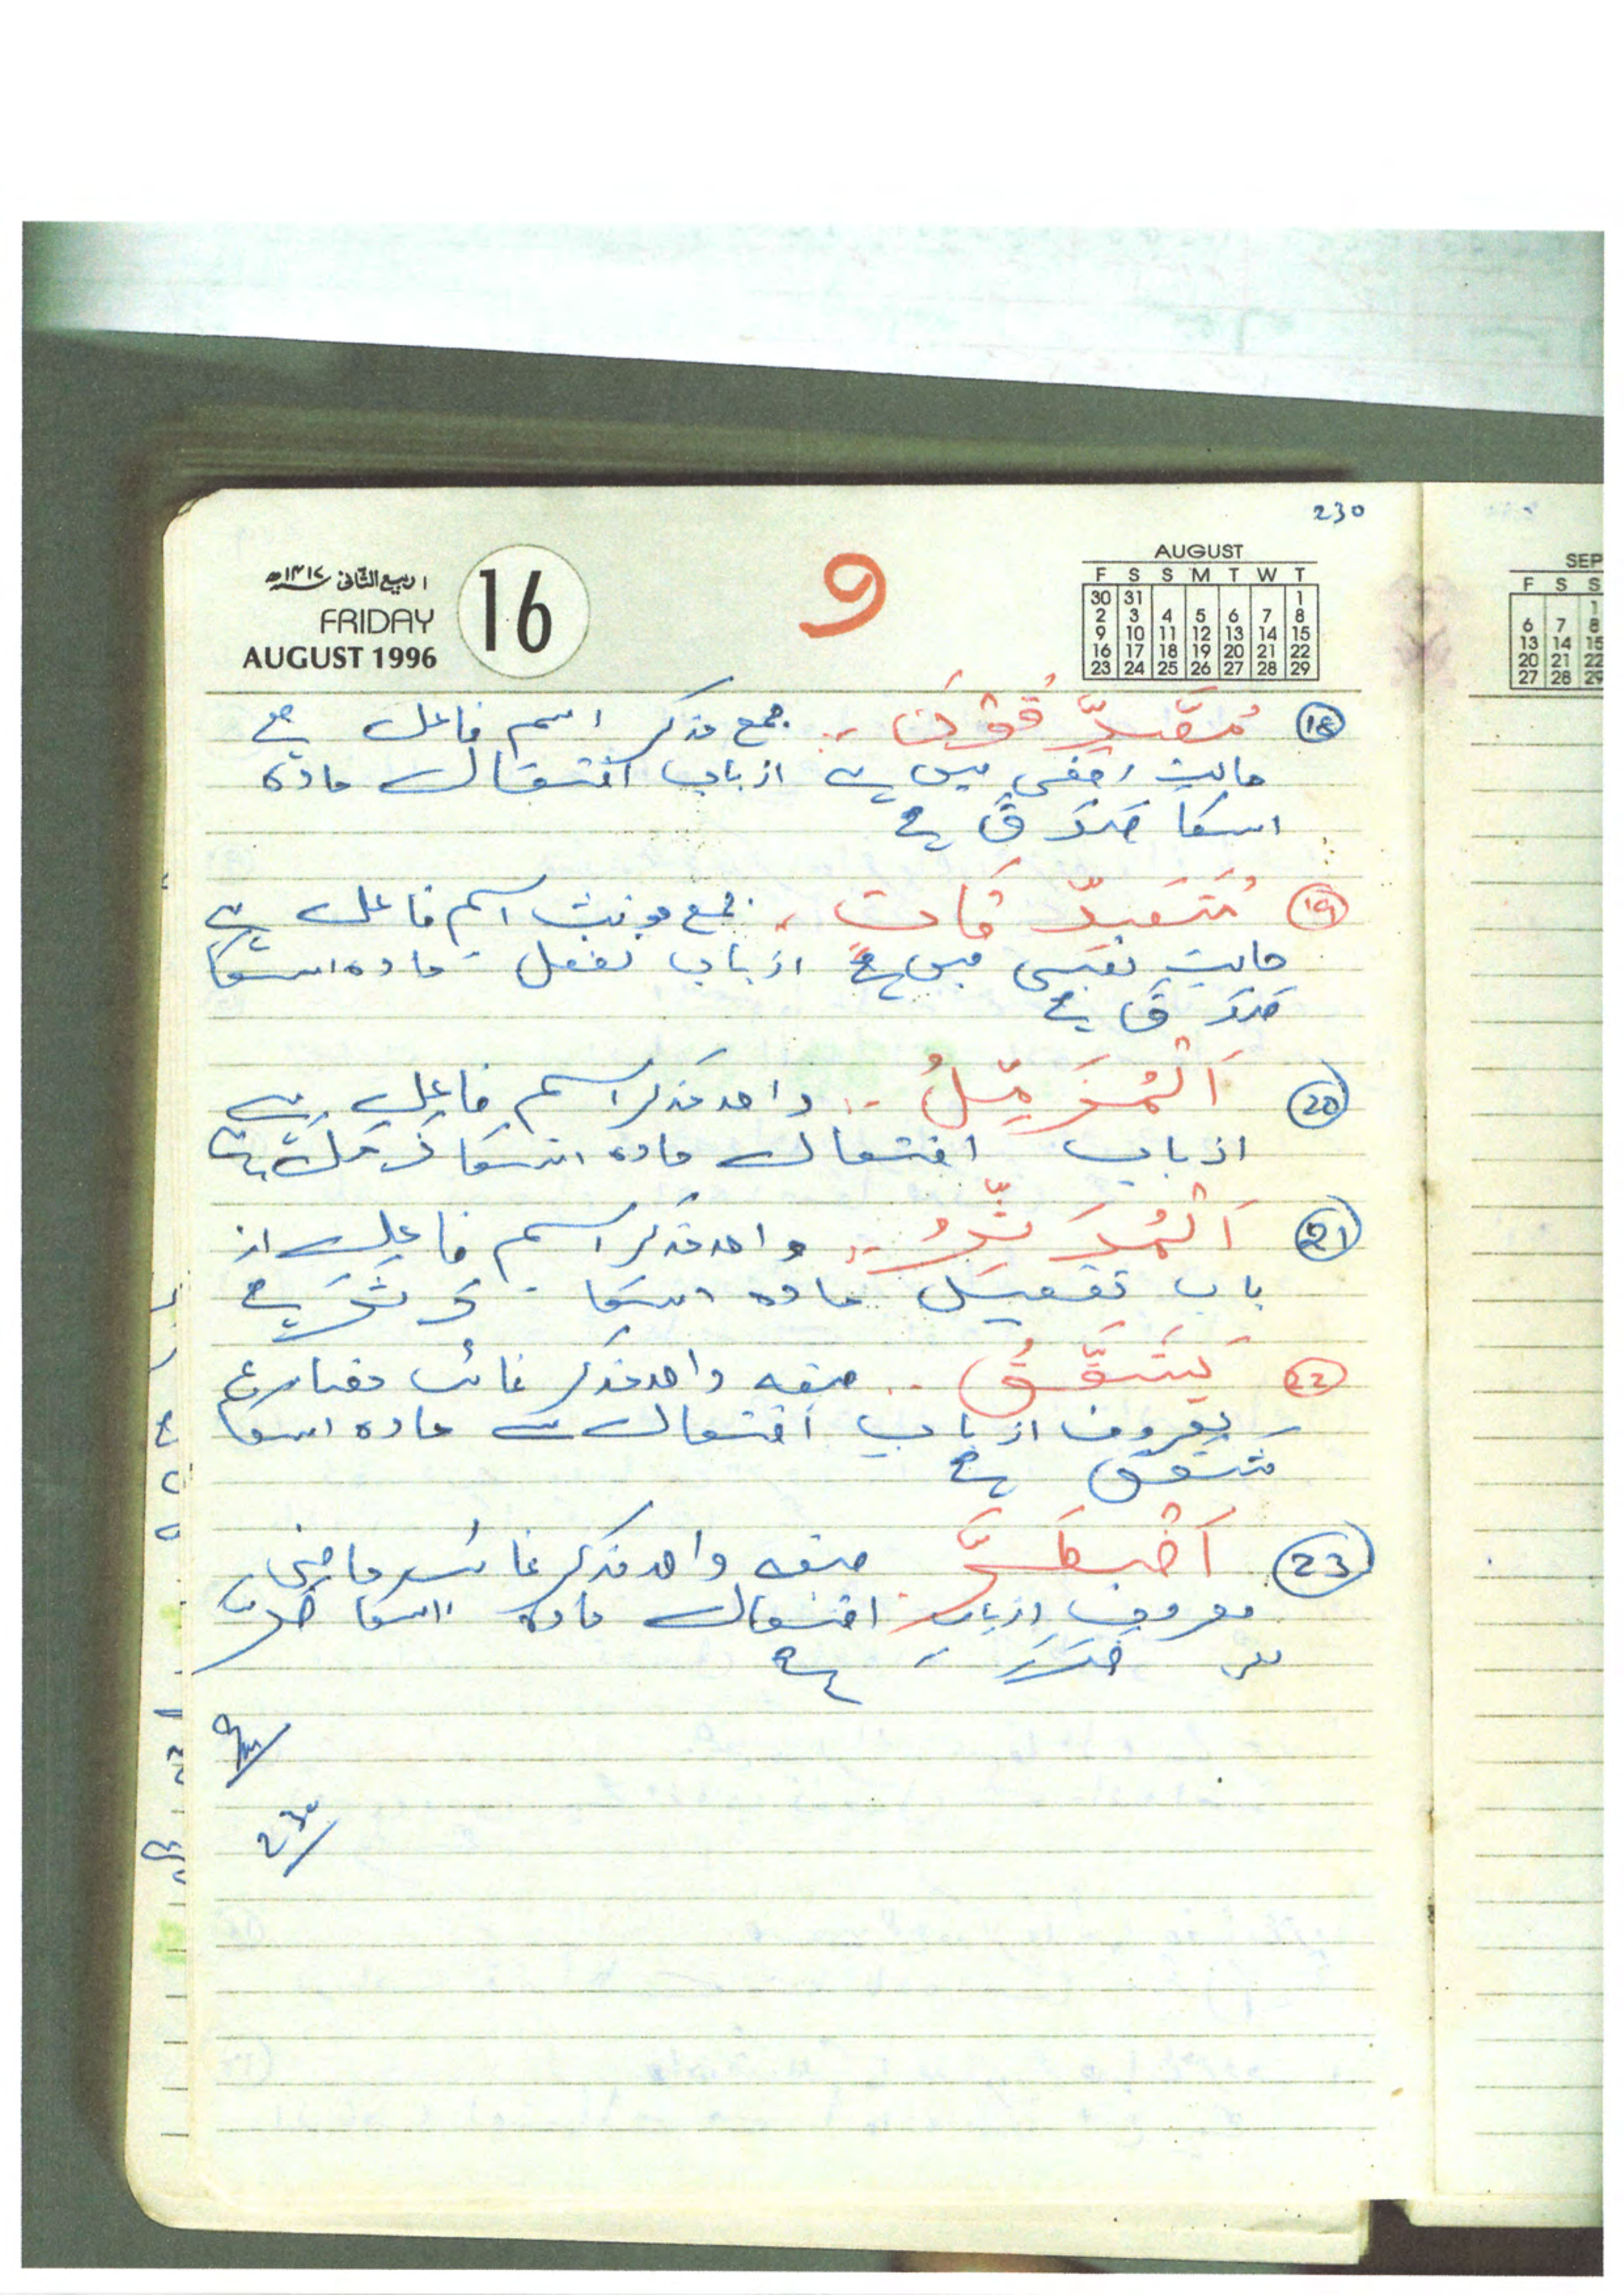 230
۱ ربیع الثانی ۱۴۱۷ھ
FRIDAY
AUGUST 1996
16
9
AUGUST
F S S M T W T
30 31 1
2 3 4 5 6 7 8
9 10 11 12 13 14 15
16 17 18 19 20 21 22
23 24 25 26 27 28 29
SEP
F S S
1
6 7 8
13 14 15
20 21 22
27 28 29
(18) مُصَّدِّقُوْنَ .. جمع مذکر اسم فاعل ہے
حالت رفعی میں ہے از باب افتعال مادہ
اسکا صَدَقَ ہے
(19) مُتَصَدِّقَات . جمع مونث اسم فاعل ہے
حالت نصبی میں ہے از باب تفعل مادہ اسکا
صَدَقَ ہے
(20) اَلْمُزَمِّلُ .. واحد مذکر اسم فاعل ہے
از باب افتعال مادہ اسکا زمل ہے
(21) اَلْمُدَثِّرُ .. واحد مذکر اسم فاعل از
باب تفعیل مادہ اسکا دَثَرَ ہے
(22) یَشَقَّقُ .. صیغہ واحد مذکر غائب مضارع
معروف از باب افتعال ہے مادہ اسکا
شقق ہے
(23) صیغہ واحد مذکر غائب ماضی
معروف از باب افتعال مادہ اسکا
ہے
9
230